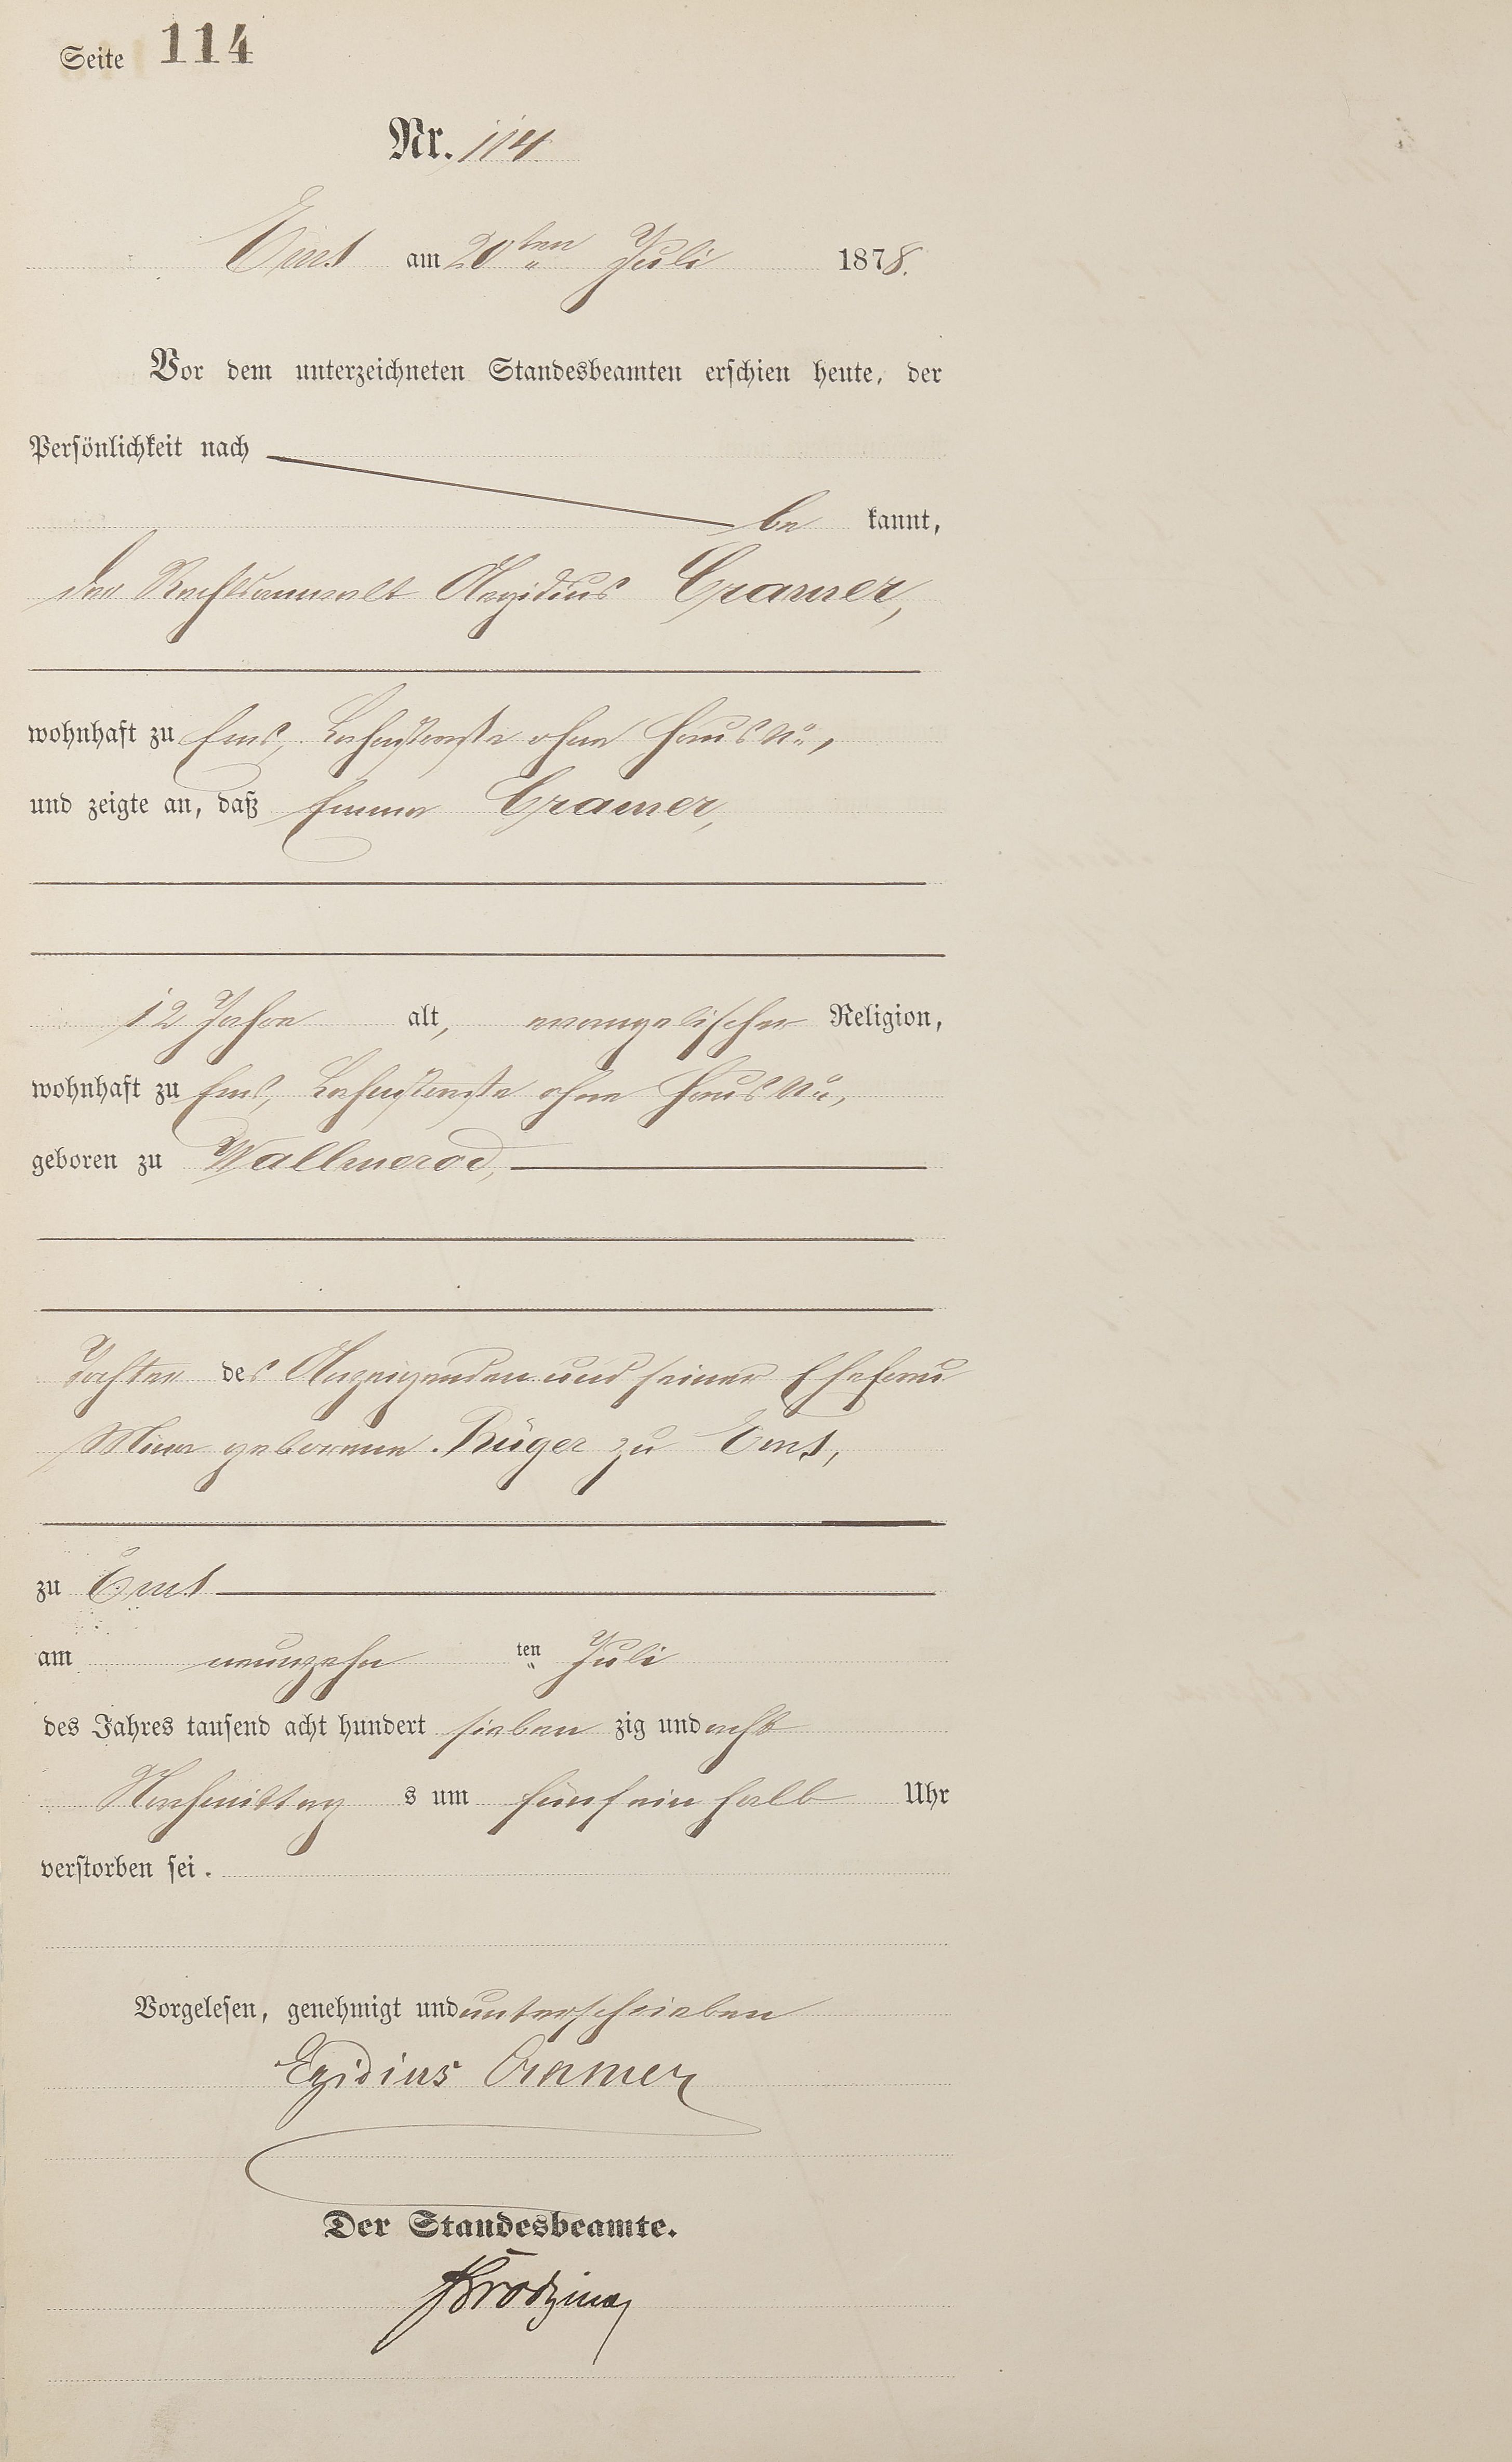 Seite 114
Nr. 114
Ems am 20ten Juli 1878.
Vor dem unterzeichneten Standesbeamten erschien heute, der
Persönlichkeit nach
be kannt,
der Rechtsanwalt Aegidius Cramer,
wohnhaft zu Ems, Lahnstraße ohne Haus No,
und zeigte an, daß Emma Cramer,
12 Jahre alt, evangelischer Religion,
wohnhaft zu Ems, Lahnstraße ohne Haus No,
geboren zu Wallmerod,
Tochter des Anzeigenden und seiner Ehefrau
Mina geborene Rüger zu Ems,
zu Ems
am neunzehn ten Juli
des Jahres tausend acht hundert sieben zig und acht
Nachmittag s um fünf ein halb Uhr
verstorben sei.
Vorgelesen, genehmigt und unterschrieben
Egidius Cramer
Der Standesbeamte.